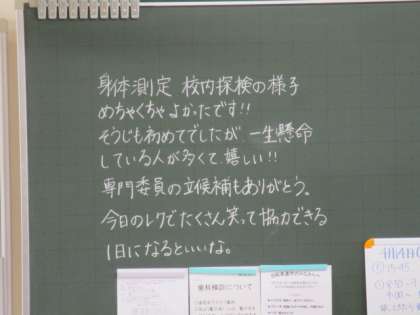 身体測定 校内探検の様子
めちゃくちゃよかったです!!
そうじも初めてでしたが、一生懸命
している人が多くて嬉しい!!
専門委員の立候補もありがとう。
今日のレクでたくさん笑って協力できる
1日になるといいな。
歯科検診について